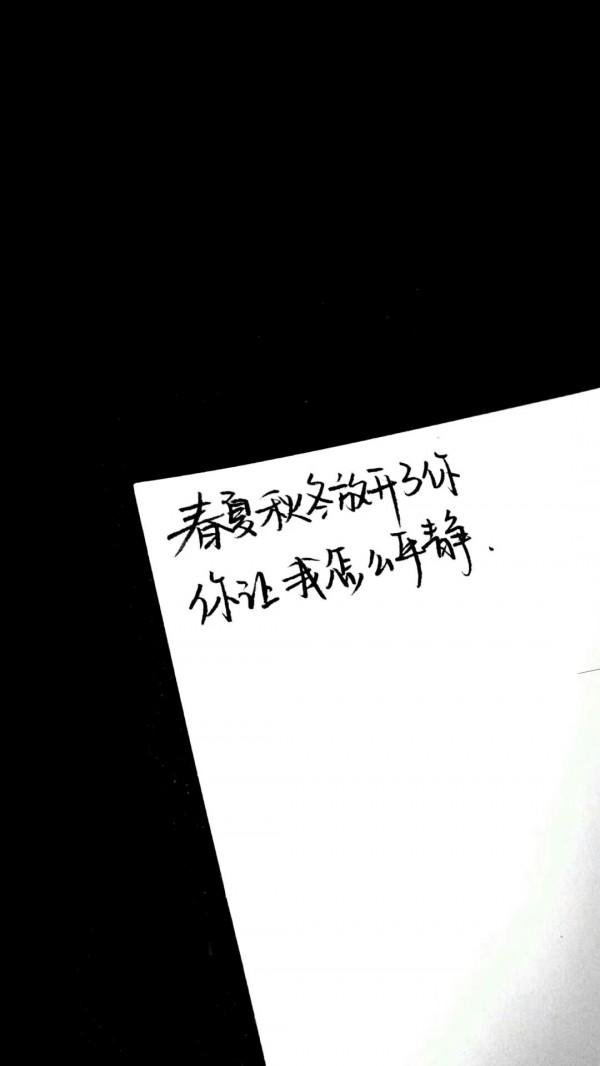 春夏秋冬放开了你
你让我怎么平静.